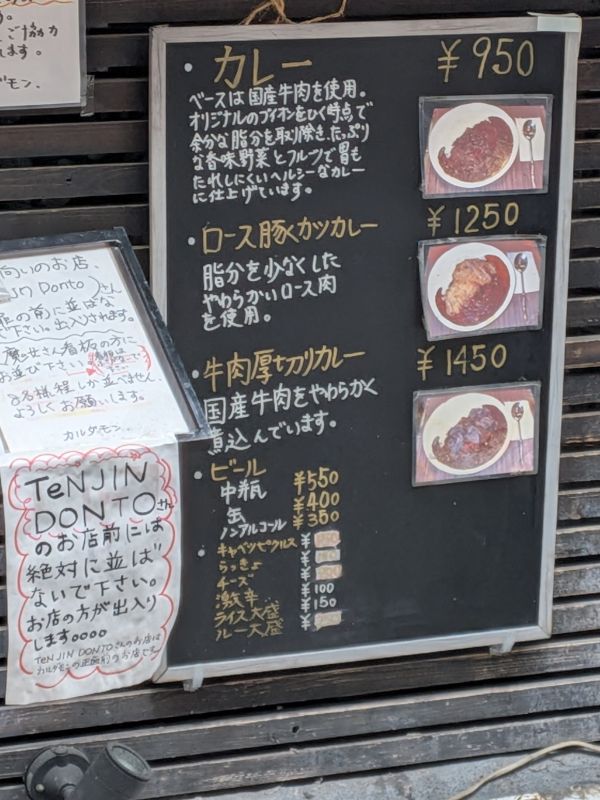 ご協力
ます。
モン.
・カレー ¥950
ベースは国産牛肉を使用。
オリジナルのブイオンをひく時点で
余分な脂分を取り除き、たっぷり
な香味野菜とフルーツで胃も
たれしにくいヘルシーなカレー
に仕上げています。
・ロース豚カツカレー ¥1250
脂分を少なくした
やわらかいロース肉
を使用。
・牛肉厚切りカレー ¥1450
国産牛肉をやわらかく
煮込んでいます。
・ビール
中瓶 ¥550
缶 ¥400
ノンアルコール ¥350
・キャベツピクルス ¥
らっきょ ¥
チーズ ¥
激辛 ¥100
ライス大盛 ¥150
ルー大盛 ¥
向いのお店、
Donto さん
の前に並ばな
下さい。出入りされます。
さん看板の方に
お並び下さい
8名様程しか並べません。
よろしくお願いします。
カルダモン.
TeNJIN
DONTOさん
のお店前には
絶対に並ば
ないで下さい。
お店の方が出入り
します。。。。
TeNJIN DONTOさんのお店は
カルダモンの正面前のお店です。